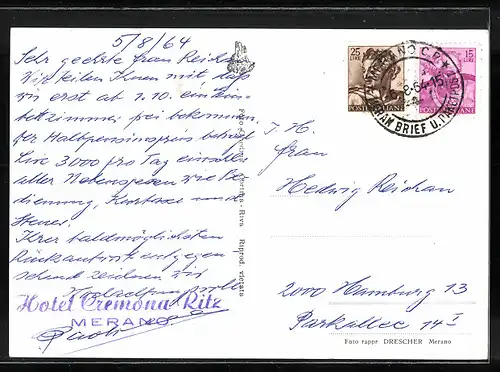 5/8/64
Sehr geehrte frau Reichau
Wir teilen Ihnen mit daß
wir erst ab 1.10. ein Ein-
bettzimmer frei bekommen.
Der Halbpensionspreis beträgt
Lire 3000 pro Tag
aller Nebenspesen wie Be-
dienung, Kurtaxe und
Steuer.
Ihrer baldmöglichsten
Rückantwort entgegen
sehend zeichnen wir
Hochachtungsvollst
Hotel Cremona Ritz
MERANO
Riprod. vietata
25 LIRE
POSTE ITALIANE
15 LIRE
POSTE ITALIANE
MERANO
BRIEF U. PAKETPOST
frau
Hedwig Reichau
2000 Hamburg 13
Parkallee 14 I
Foto rappr DRESCHER Merano